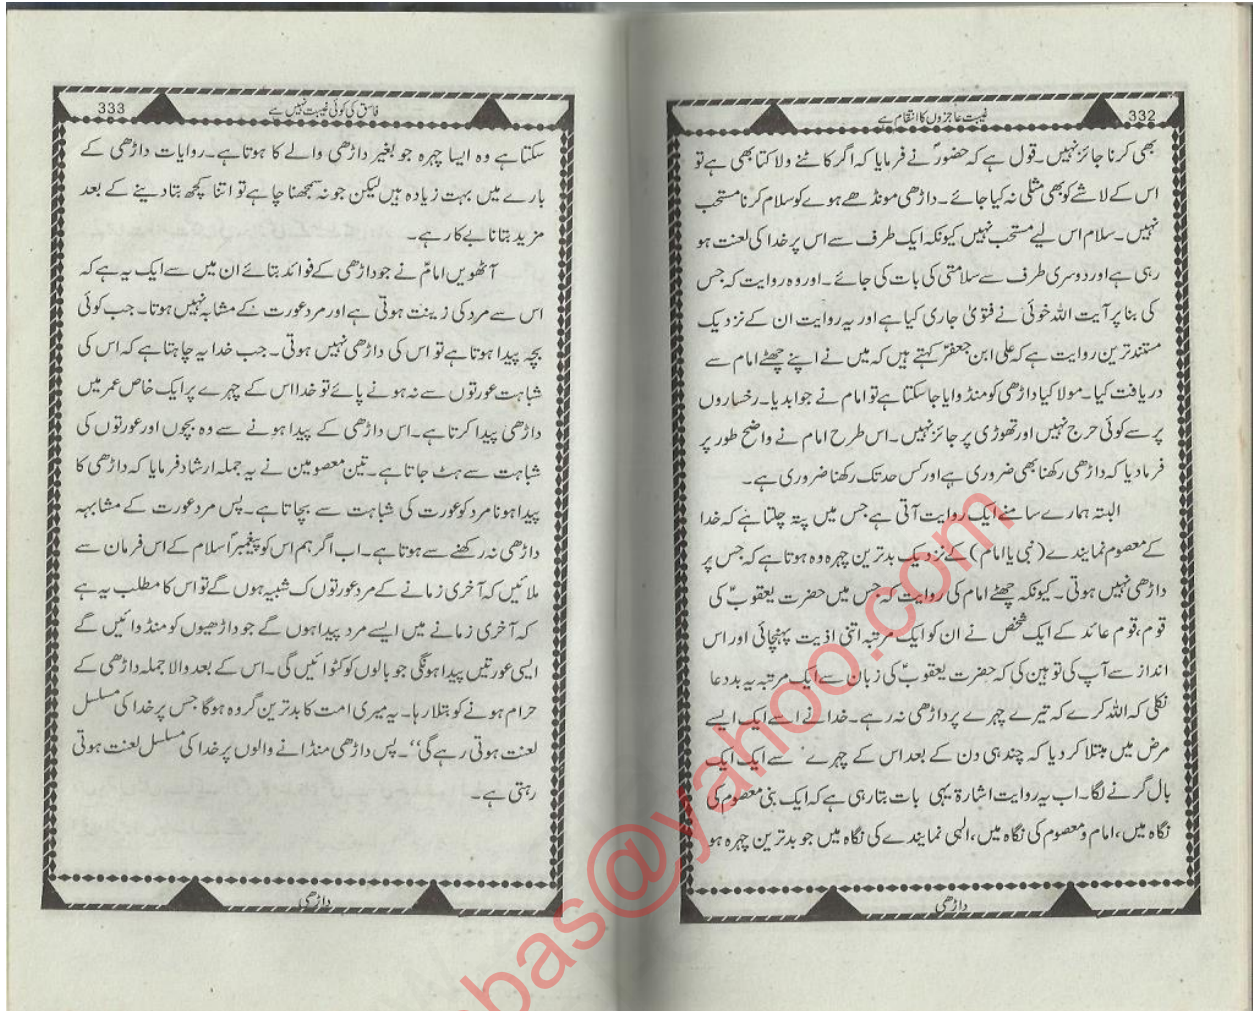 332
غیبت عاجزوں کا انتقام ہے
بھی کرنا جائز نہیں۔ قول ہے کہ حضورؐ نے فرمایا کہ اگر کاٹنے ولا کتا بھی ہے تو
اس کے لاشے کو بھی مثلی نہ کیا جائے۔ داڑھی مونڈھے ہوے کو سلام کرنا مستحب
نہیں۔ سلام اس لیے مستحب نہیں کیونکہ ایک طرف سے اس پر خدا کی لعنت ہو
رہی ہے اور دوسری طرف سے سلامتی کی بات کی جائے۔ اور وہ روایت کہ جس
کی بنا پر آیت اللہ خوئی نے فتویٰ جاری کیا ہے اور یہ روایت ان کے نزدیک
مستند ترین روایت ہے کہ علی ابن جعفرؑ کہتے ہیں کہ میں نے اپنے چھٹے امام سے
دریافت کیا۔ مولا کیا داڑھی کو منڈوایا جا سکتا ہے تو امام نے جوابدیا۔ رخساروں
پر سے کوئی حرج نہیں اور تھوڑی پر جائز نہیں۔ اس طرح امام نے واضح طور پر
فرمادیا کہ داڑھی رکھنا بھی ضروری ہے اور کس حد تک رکھنا ضروری ہے۔
البتہ ہمارے سامنے ایک روایت آتی ہے جس میں پتہ چلتا ہے کہ خدا
کے معصوم نمایندے (نبی یا امام) کے نزدیک بدترین چہرہ وہ ہوتا ہے کہ جس پر
داڑھی نہیں ہوتی۔ کیونکہ چھٹے امام کی روایت کہ جس میں حضرت یعقوبؑ کی
قوم، قوم عائد کے ایک شخص نے ان کو ایک مرتبہ اتنی اذیت پہنچائی اور اس
انداز سے آپ کی توہین کی کہ حضرت یعقوبؑ کی زبان سے ایک مرتبہ یہ بددعا
نکلی کہ اللہ کرے کہ تیرے چہرے پر داڑھی نہ رہے۔ خدا نے اسے ایک ایسے
مرض میں مبتلا کر دیا کہ چند ہی دن کے بعد اس کے چہرے سے ایک ایک
بال گرنے لگا۔ اب یہ روایت اشارۃ یہی بات بتا رہی ہے کہ ایک بنی معصوم کی
نگاہ میں، امام و معصوم کی نگاہ میں، الہی نمایندے کی نگاہ میں جو بدترین چہرہ ہو
داڑھی
333
فاسق کی کوئی غیبت نہیں ہے
سکتا ہے وہ ایسا چہرہ جو بغیر داڑھی والے کا ہوتا ہے۔ روایات داڑھی کے
بارے میں بہت زیادہ ہیں لیکن جو نہ سمجھنا چاہے تو اتنا کچھ بتا دینے کے بعد
مزید بتانا بے کار ہے۔
آٹھویں امامؑ نے جو داڑھی کے فوائد بتائے ان میں سے ایک یہ ہے کہ
اس سے مرد کی زینت ہوتی ہے اور مرد عورت کے مشابہ نہیں ہوتا۔ جب کوئی
بچہ پیدا ہوتا ہے تو اس کی داڑھی نہیں ہوتی۔ جب خدا یہ چاہتا ہے کہ اس کی
شباہت عورتوں سے نہ ہونے پائے تو خدا اس کے چہرے پر ایک خاص عمر میں
داڑھی پیدا کرتا ہے۔ اس داڑھی کے پیدا ہونے سے وہ بچوں اور عورتوں کی
شباہت سے ہٹ جاتا ہے۔ تین معصومین نے یہ جملہ ارشاد فرمایا کہ داڑھی کا
پیدا ہونا مرد کو عورت کی شباہت سے بچاتا ہے۔ پس مرد عورت کے مشابہہ
داڑھی نہ رکھنے سے ہوتا ہے۔ اب اگر ہم اس کو پیغمبرؐ اسلام کے اس فرمان سے
ملائیں کہ آخری زمانے کے مرد عورتوں ک شبیہ ہوں گے تو اس کا مطلب یہ ہے
کہ آخری زمانے میں ایسے مرد پیدا ہوں گے جو داڑھیوں کو منڈوائیں گے
ایسی عورتیں پیدا ہونگی جو بالوں کو کٹوائیں گی۔ اس کے بعد والا جملہ داڑھی کے
حرام ہونے کو بتلا رہا۔ یہ میری امت کا بدترین گروہ ہوگا جس پر خدا کی مسلسل
لعنت ہوتی رہے گی‘‘۔ پس داڑھی منڈانے والوں پر خدا کی مسلسل لعنت ہوتی
رہتی ہے۔
داڑھی
bas@yahoo.com